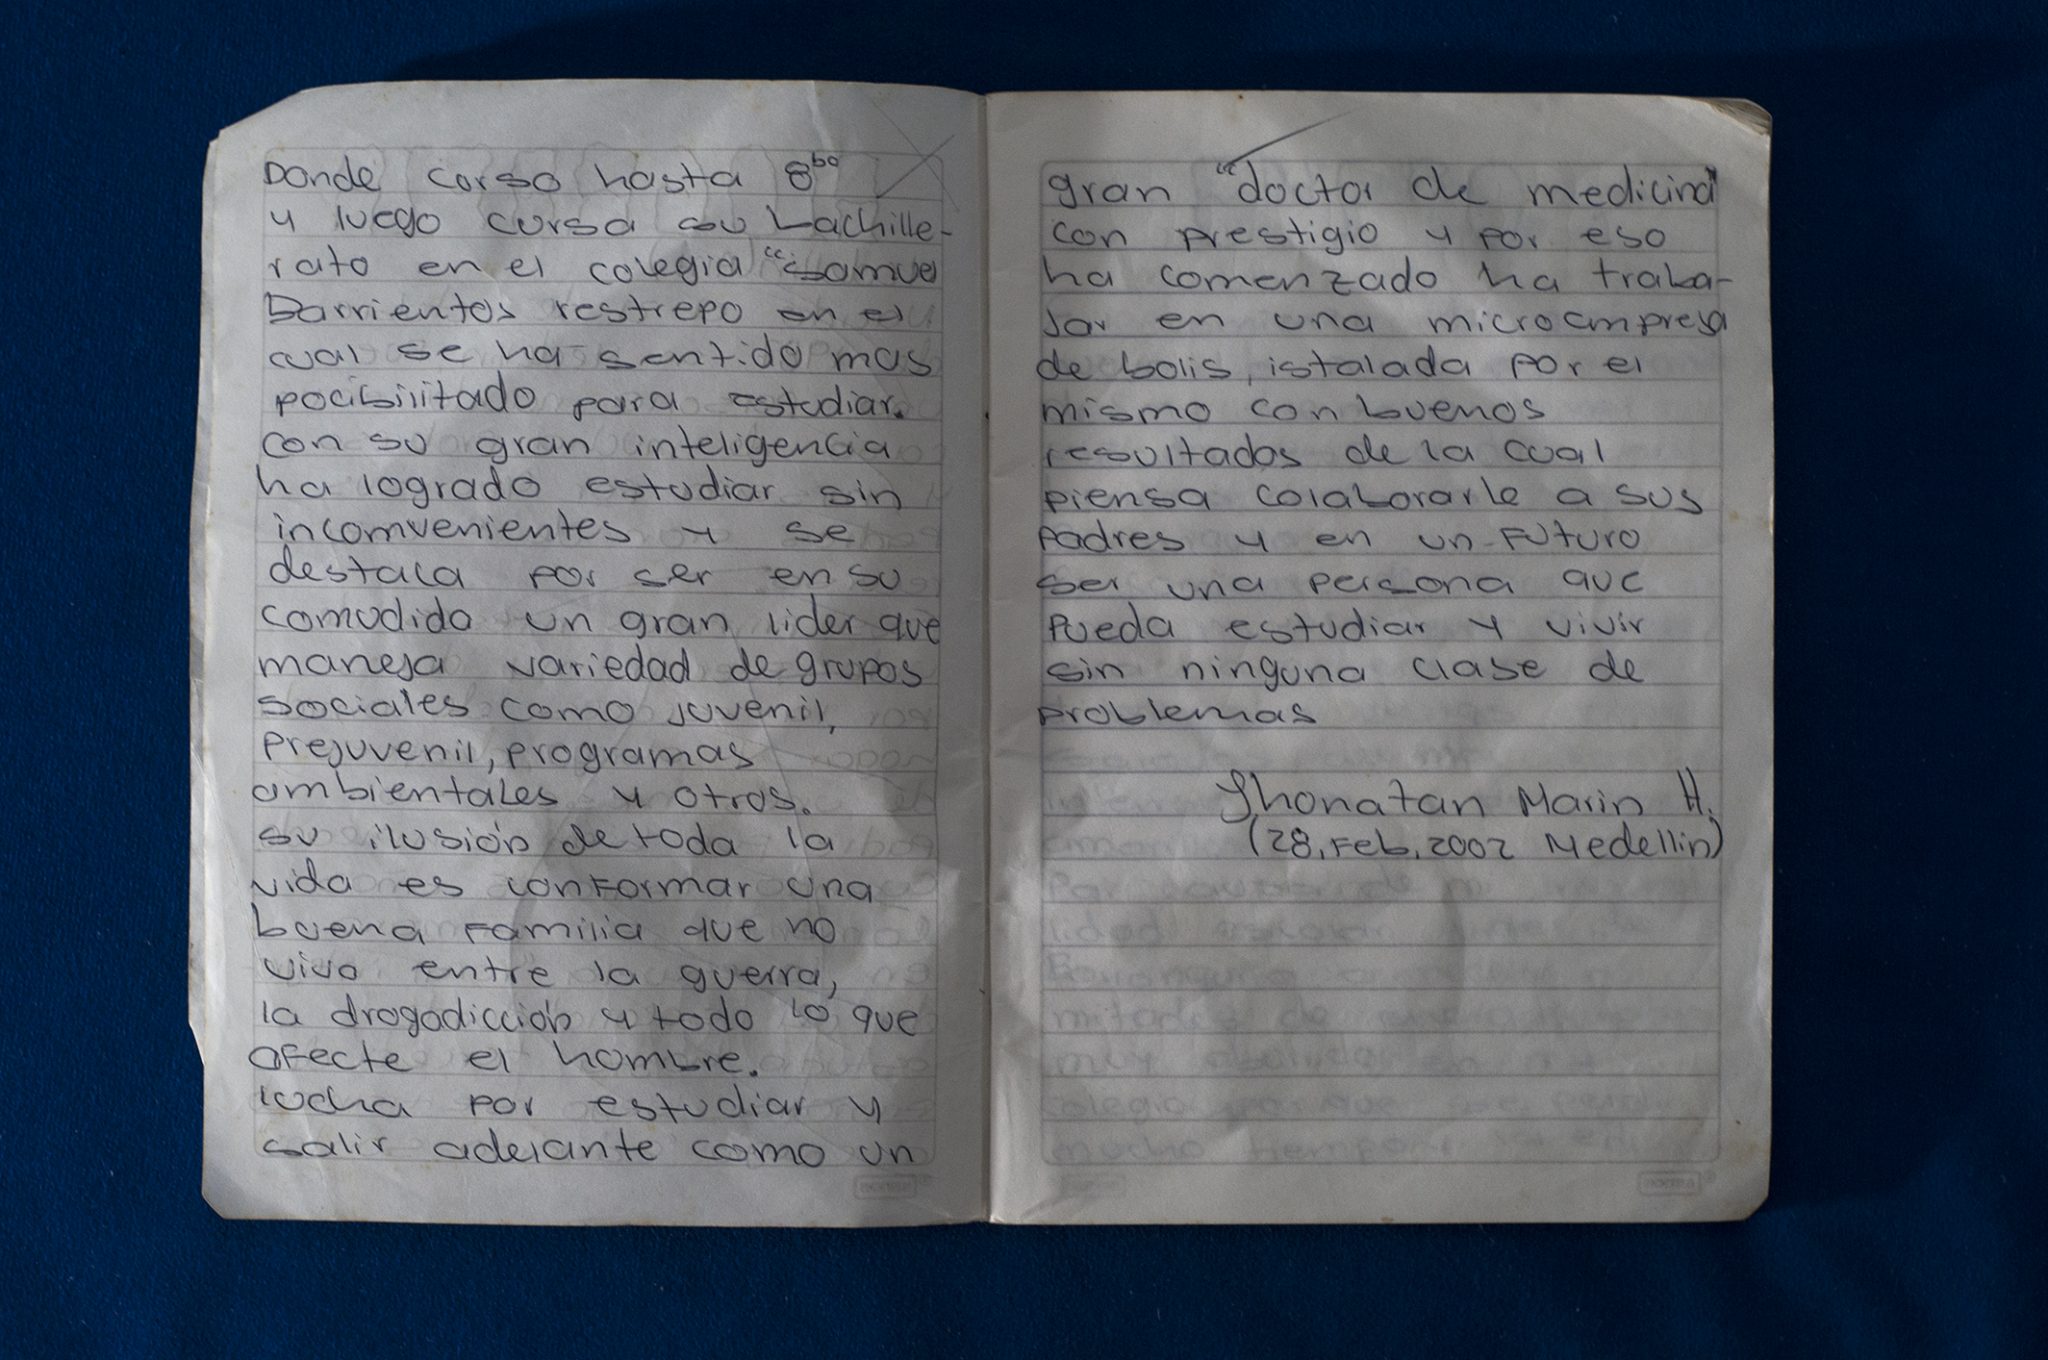 Donde corso hasta 8bo
y luego cursa su bachille-
rato en el colegia "samuel
barrientos restrepo en el
cual se ha sentido mas
pocibilitado para estudiar.
con su gran inteligencia
ha logrado estudiar sin
incomvenientes y se
destaca por ser en su
comudida un gran lider que
maneja variedad de grupos
sociales como juvenil,
prejuvenil, programas
ambientales y otros.
su ilusión de toda la
vida es conformar una
buena familia que no
viva entre la guerra,
la drogadicción y todo lo que
afecte el hombre.
lucha por estudiar y
salir adelante como un
gran "doctor de medicina"
con prestigio y por eso
ha comenzado ha traba-
jar en una microempresa
de bolis, istalada por el
mismo con buenos
resultados de la cual
piensa colaborarle a sus
padres y en un futuro
ser una persona que
pueda estudiar y vivir
sin ninguna clase de
problemas
Jhonatan Marin H.
(28, Feb, 2002 Medellin)
norma